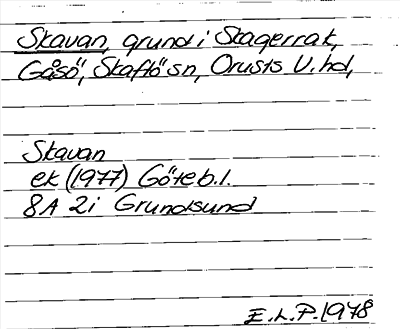 Skavan, grund i Skagerrak,
Gåsö, Skaftö sn, Orusts V. hd,
Skavan
ek (1977) Göteb. l.
8A 2i Grundsund
E.L.P. 1978